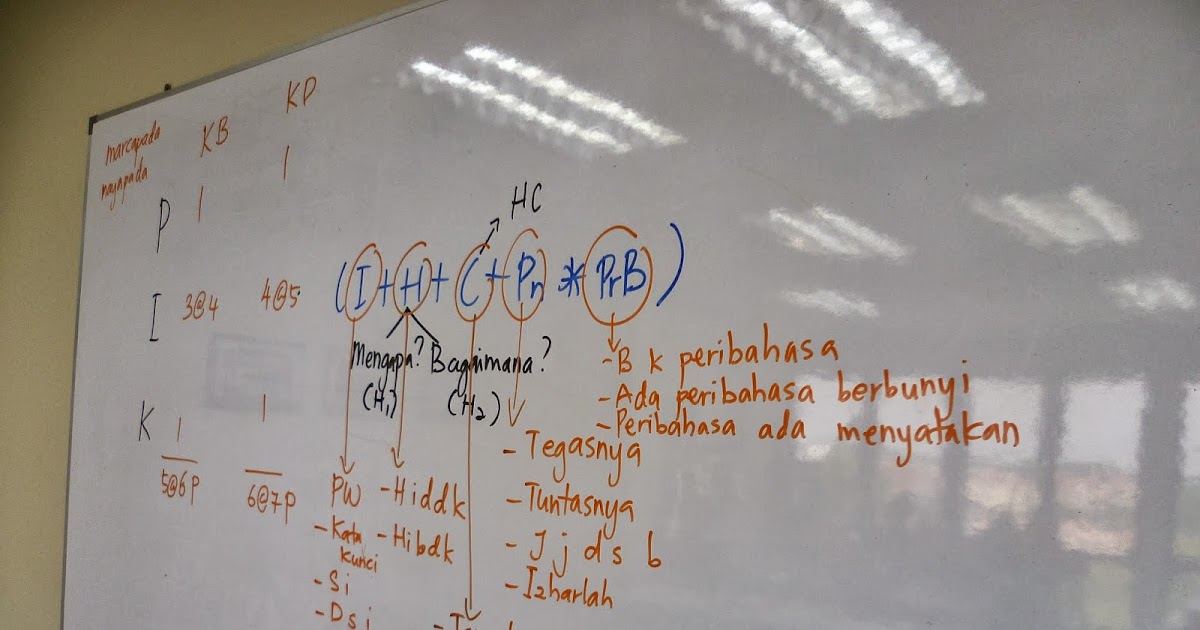 marcapada
mayapada
KB
KP
P
1
1
HC
I
3@4
4@5
(I + H + C + Pn * PrB)
Mengapa?
(H1)
Bagaimana?
(H2)
K
1
1
5@6p
6@7p
PW
- Kata
kunci
- Si
- Dsi
- Hiddk
- Hibdk
- Tegasnya
- Tuntasnya
- J j d s b
- Izharlah
- B k peribahasa
- Ada peribahasa berbunyi
- Peribahasa ada menyatakan